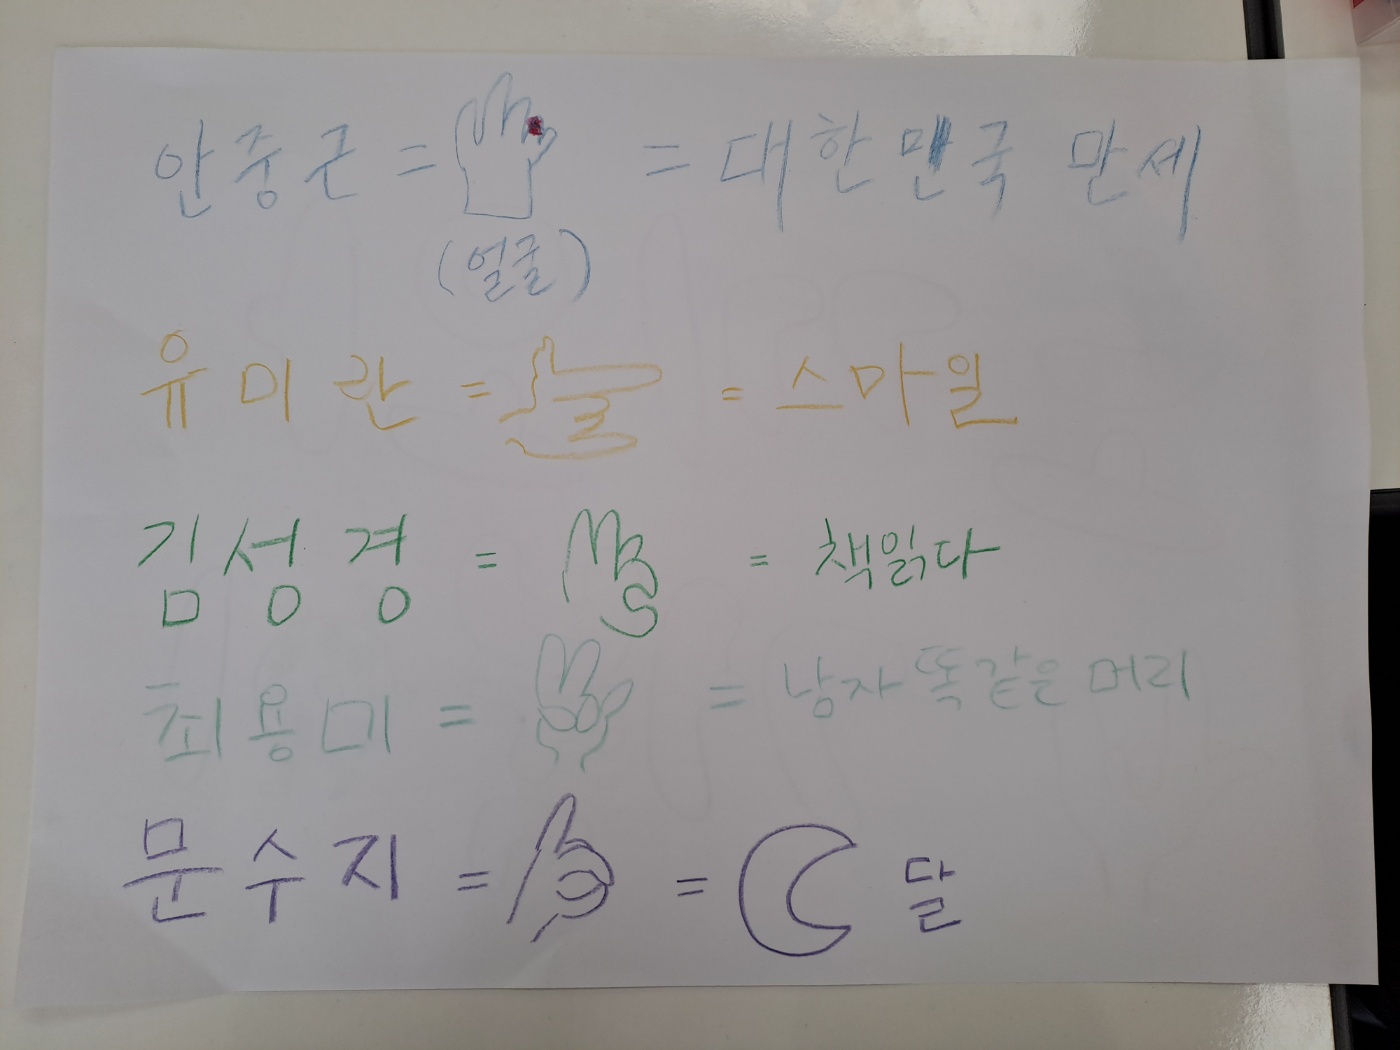 안중근 = = 대한민국 만세
(얼굴)
유미란 = = 스마일
김성경 = = 책읽다
최용미 = = 남자 똑같은 머리
문수지 = = 달